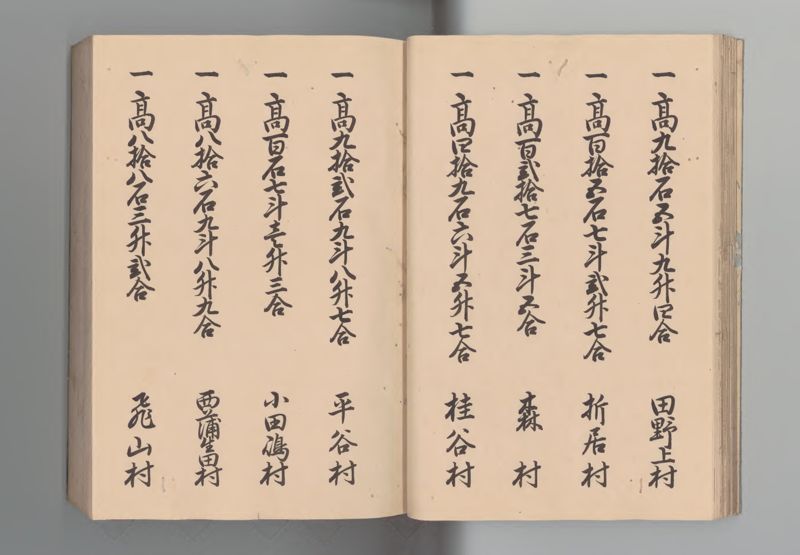 一 高九拾石五斗九升四合 田野上村
一 高百拾五石七斗弐升七合 折居村
一 高百弐拾七石三斗五合 森村
一 高四拾九石六斗五升七合 桂谷村
一 高九拾弐石九斗八升七合 平谷村
一 高百石七斗壱升三合 小田嶋村
一 高八拾六石九斗八升九合 西蒲生田村
一 高八拾八石三升弐合 飛山村